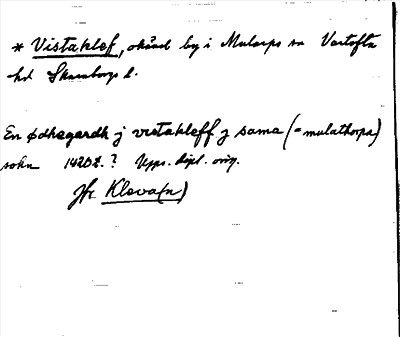 * Vistaklef, okänd by i Mularps sn Vartofta
hd Skaraborgs l.
En ødhegardh j vistakleff j sama (= mulathorpa)
sokn 1420t.? Upps. dipl. orig.
Jfr Kleva(n)